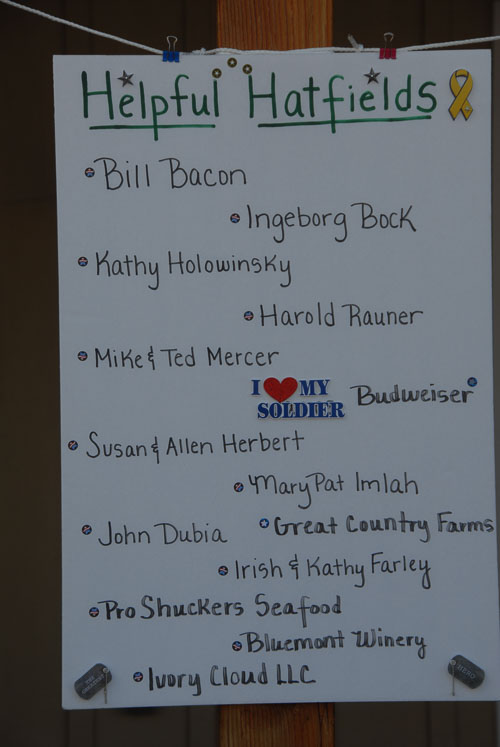 Helpful Hatfields
Bill Bacon
Ingeborg Bock
Kathy Holowinsky
Harold Rauner
Mike & Ted Mercer
I MY
SOLDIER
Budweiser
Susan & Allen Herbert
MaryPat Imlah
John Dubia
Great Country Farms
Irish & Kathy Farley
Pro Shuckers Seafood
Bluemont Winery
Ivory Cloud LLC